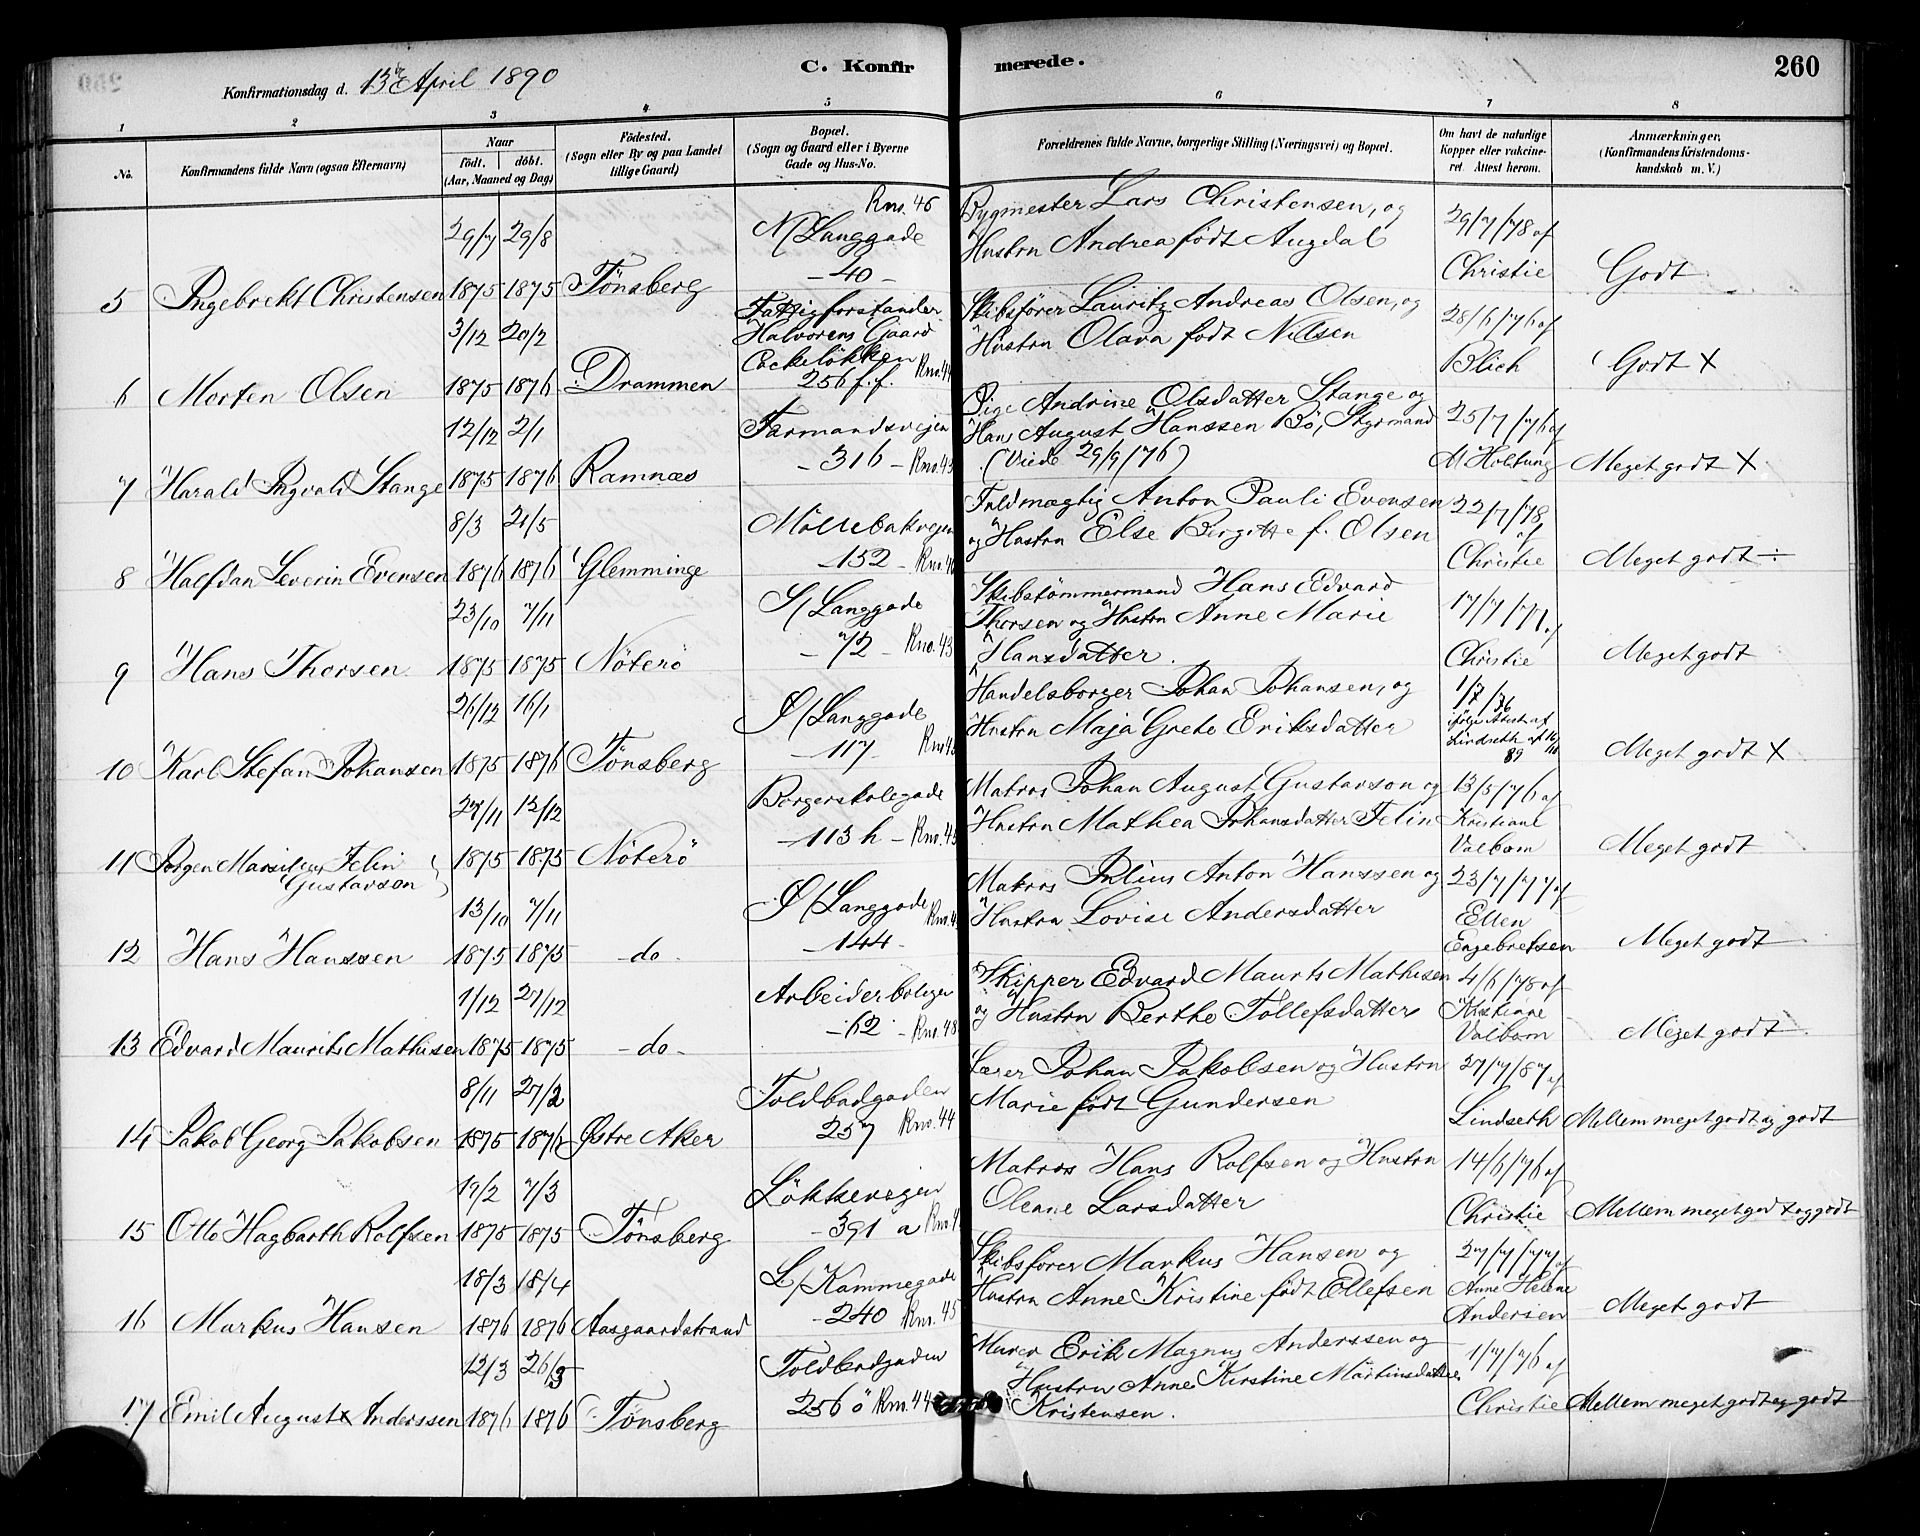 C. Konfirmerede.
260
Konfirmationsdag d. 13de April 1890
1 2 3 4 5 6 7 8
No.
Konfirmandens fulde Navn (ogsaa Efternavn)
Naar
födt. döbt.
(Aar, Maaned og Dag)
Födested.
(Sogn eller By og paa Landet
tillige Gaard)
Bopæl.
(Sogn og Gaard eller i Byerne
Gade og Hus-No.
Forældrenes fulde Navne, borgerlige Stilling (Næringsvei) og Bopæl.
Om havt de naturlige
Kopper eller vakcine-
ret. Attest herom.
Anmærkninger,
(Konfirmandens Kristendoms-
kundskab m. V.)
5 Ingebrekt Christensen
29/7 1875 29/8 1875
Tönsberg
N/Langgade
- 40 -
Rno. 46
Bygmester Lars Christensen, og
Hustru Andrea födt Augdal
29/7/78 af
Christie
Godt
6 Morten Olsen
3/12 1875 20/2 1876
Drammen
Fattigforstander
Halvorsens Gaard
256 f.f.
Skibsförer Lauritz Andreas Olsen, og
Hustru Olava födt Nilsen
28/6/76 af
Blich
Godt X
7 Harald Ingvald Stange
12/12 1875 2/1 1876
Ramnæs
Farmandsvejen
- 316 -
Pige Andrine Olsdatter Stange og
Hans August Hanssen Bö, Styrmand
(Viede 29/9/76)
25/7/76 af
M Holtung
Meget godt X
8 Halfdan Severin Evensen
8/3 1876 21/5 1876
Glemminge
Möllebakvejen
- 152 -
Fuldmægtig Anton Pauli Evensen
og Hustru Else Birgitte f. Olsen
22/7/78
af
Christie
Meget godt ÷
9 Hans Thorsen
23/10 1875 7/11 1875
Nöterö
S/Langgade
- 72 - Rno. 43
Skibstömmermand Hans Edvard
Thorsen og Hustru Anne Marie
Hansdatter.
17/7/77 af
Christie
Meget godt
10 Karl Stefan Johansen
26/12 1875 16/1 1876
Tönsberg
Ö/Langgade
- 117 -
Handelsborger Johan Johansen, og
Hustru Maja Grete Eriksdatter
1/7/76
ifölge Attest af
Lindseth
89
Meget godt X
11 Jörgen Marsilius Felin
Gustavson
27/11 1875 12/12 1875
Nöterö
Borgerskolegade
- 113 h -
Matros Johan August Gustavson og
Hustru Mathea Johansdatter Felin
13/5/76 af
Kristiane
Valbom
Meget godt
12 Hans Hanssen
13/10 1875 7/11 1875
- do -
Ö/Langgade
- 144 -
Matros Julius Anton Hanssen og
Hustru Lovise Andersdatter
23/7/77 af
Ellen
Engebretsen
Meget godt
13 Edvard Maurits Mathisen
1/12 1875 27/12 1875
- do -
Arbeiderboliger
- 62 - Rno. 48
Skipper Edvard Maurits Mathisen
og Hustru Berthe Tollefsdatter
4/6/78 af
Kristiane
Valbom
Meget godt
14 Jakob Georg Jakobsen
8/11 1875 27/2 1876
Østre Aker
Toldbodgaden
257 Rno. 44
Lærer Johan Jakobsen og Hustru
Marie födt Gundersen
27/7/87 af
Lindseth
Mellem meget godt og godt
15 Otto Hagbarth Rolfsen
17/2 1875 7/3 1875
Tönsberg
Lökkeveien
- 391 a
Matros Hans Rolfsen og Hustru
Oleane Larsdatter
14/6/76 af
Christie
Mellem meget godt og godt
16 Markus Hansen
18/3 1876 18/4 1876
Aasgaardstrand
L/Kammegade
- 240 Rno. 45
Skibsförer Markus Hansen og
Hustru Anne Kristine födt Ellefsen
27/7/77 af
Anne Helene
Andersen
Meget godt
17 Emil August Anderssen
12/3 1876 26/3 1876
Tönsberg
Toldbodgaden
256 ö Rno. 44
Murer Erik Magnus Anderssen og
Hustru Anne Kirstine Martinsdatter
Kristensen.
1/7/76 af
Christie
Mellem meget godt og godt